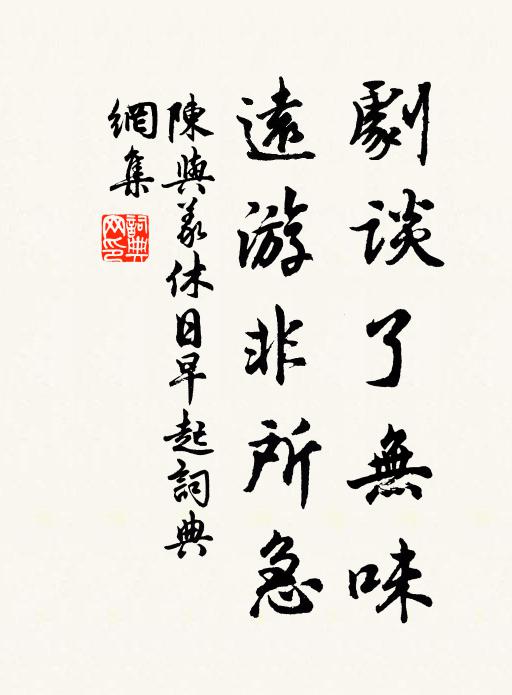 劇談了無味
遠游非所急
陳與義休日早起詞典
網集
詞典
网印